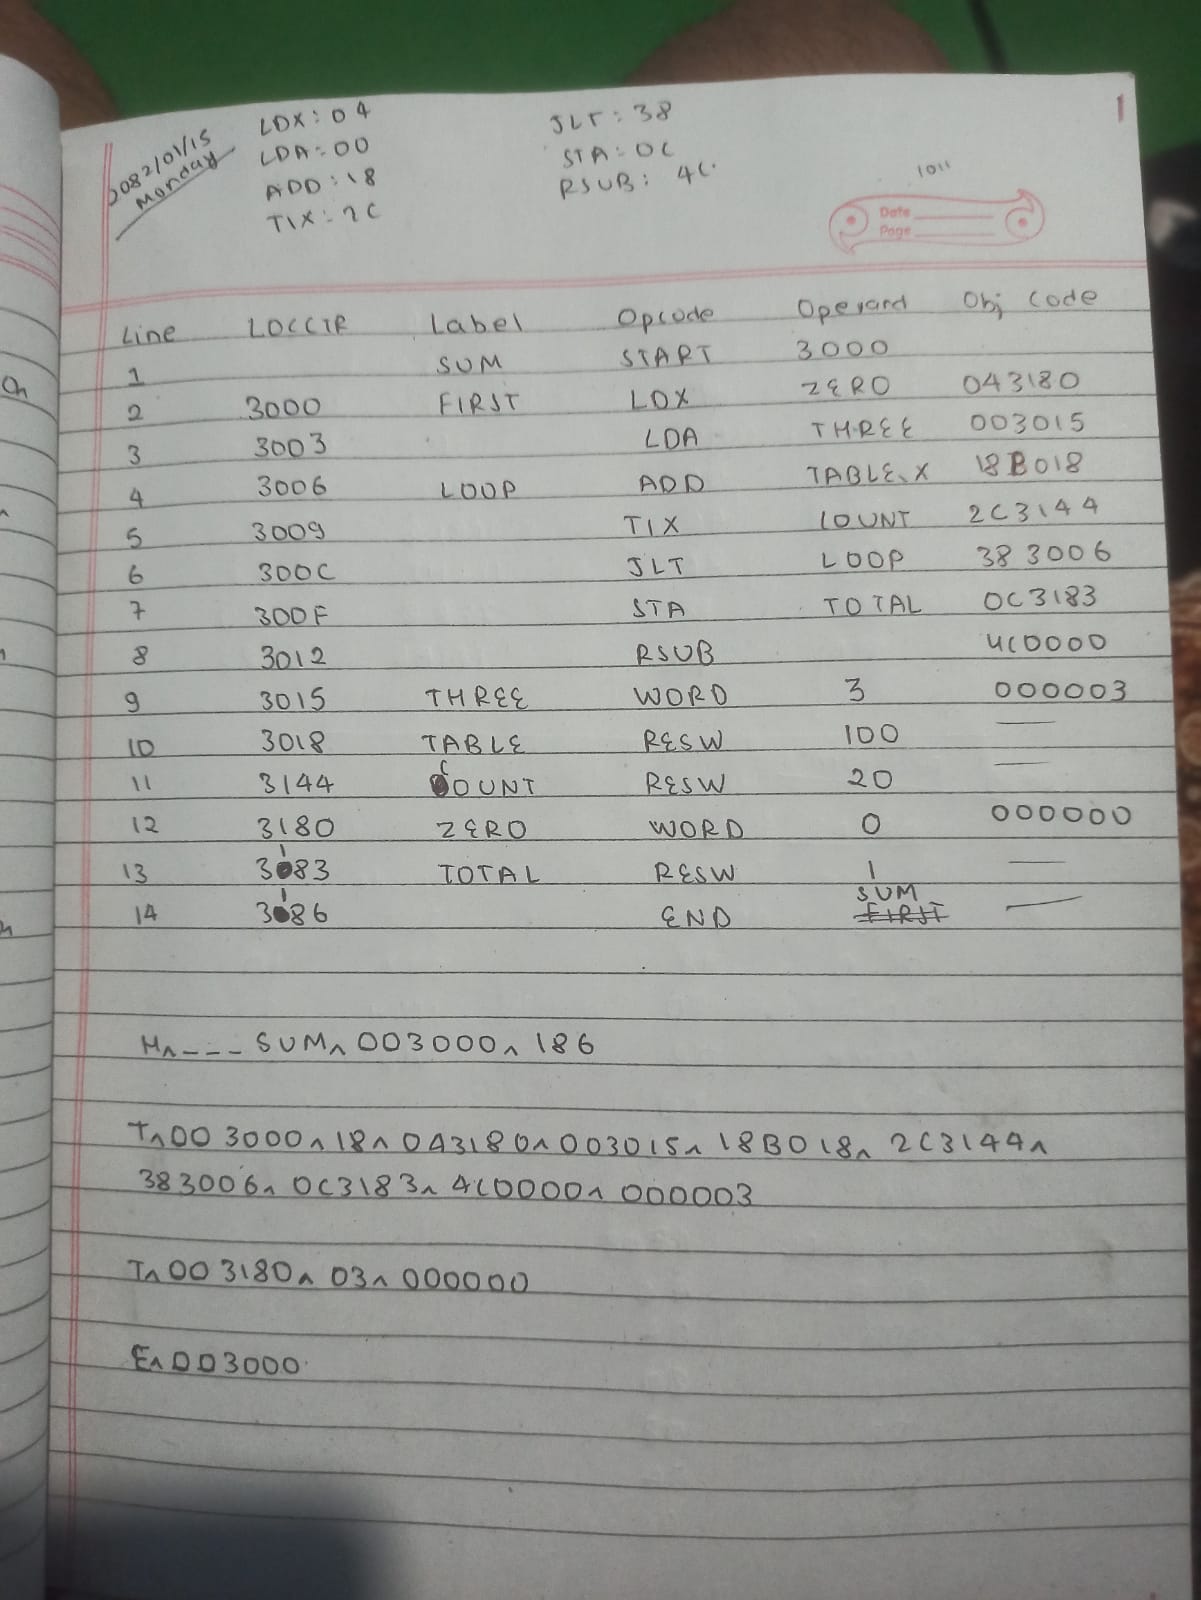 1
2082/01/15
Monday
LDX: 04
LDA: 00
ADD: 18
TIX: 2C
JLT: 38
STA: 0C
RSUB: 4C.
1011
Date
Page
Line LOCCTR Label Opcode Operand Obj Code
1 SUM START 3000
2 3000 FIRST LDX ZERO 043180
3 3003 LDA THREE 003015
4 3006 LOOP ADD TABLE, X 18B018
5 3009 TIX COUNT 2C3144
6 300C JLT LOOP 383006
7 300F STA TOTAL 0C3183
8 3012 RSUB 4C0000
9 3015 THREE WORD 3 000003
10 3018 TABLE RESW 100 —
11 3144 COUNT RESW 20 —
12 3180 ZERO WORD 0 000000
13 3183 TOTAL RESW 1 —
14 3186 END SUM FIRST —
H^___SUM^003000^186
T^003000^18^043180^003015^18B018^2C3144^
383006^0C3183^4C0000^000003
T^003180^03^000000
E^003000